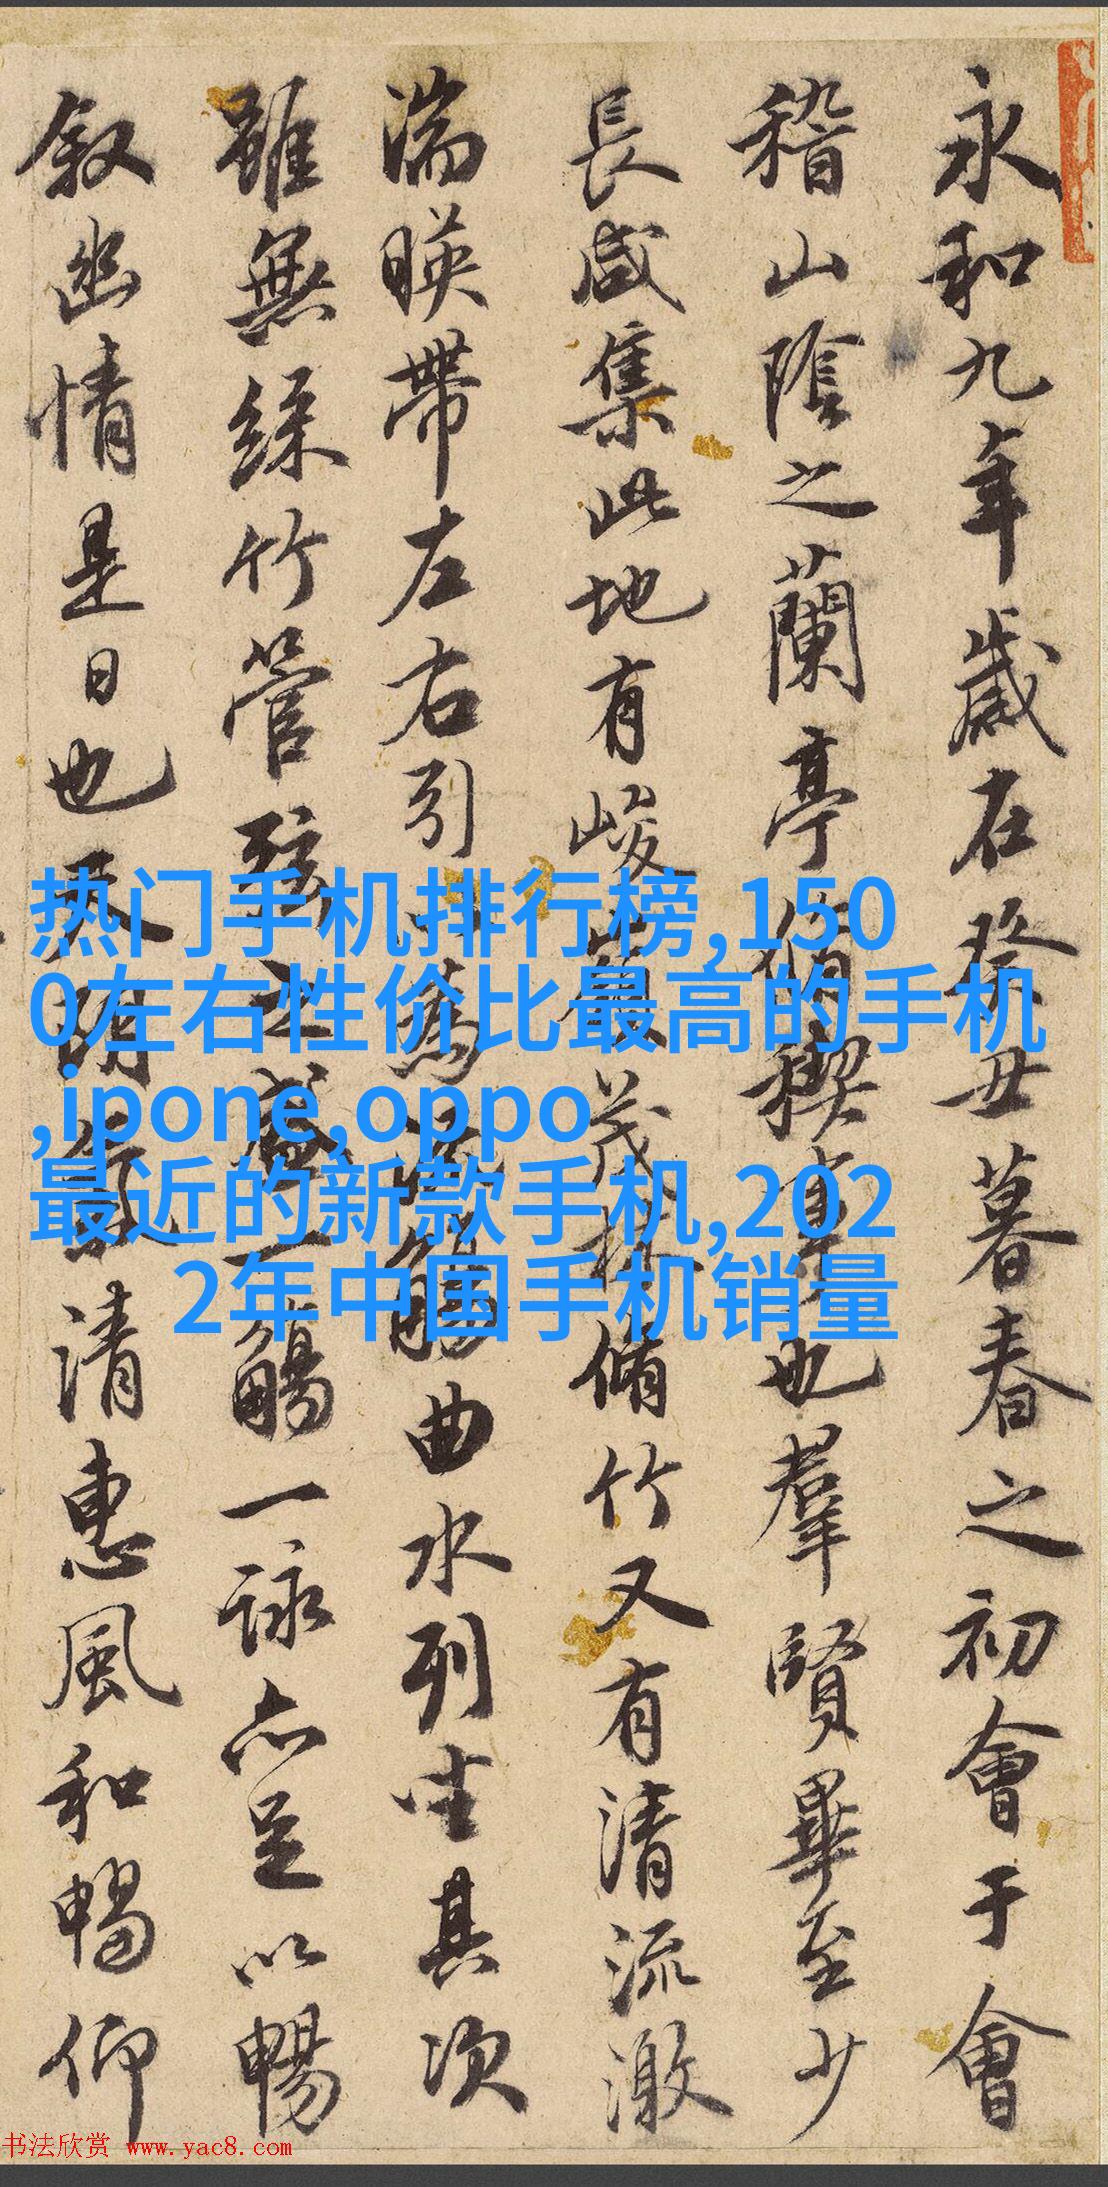 永和九年歲在癸丑暮春之初會于會
稽山陰之蘭亭脩禊事也羣賢畢至少
長咸集此地有峻嶺茂林脩竹又有清流激
湍暎帶左右引以為流觴曲水列坐其次
雖無絲竹管弦之盛一觴一詠亦足以暢
叙幽情是日也天朗氣清惠風和暢仰
热门手机排行榜,150
0左右性价比最高的手机
,ipone,oppo
最近的新款手机,202
2年中国手机销量
书法欣赏 www.yac8.com